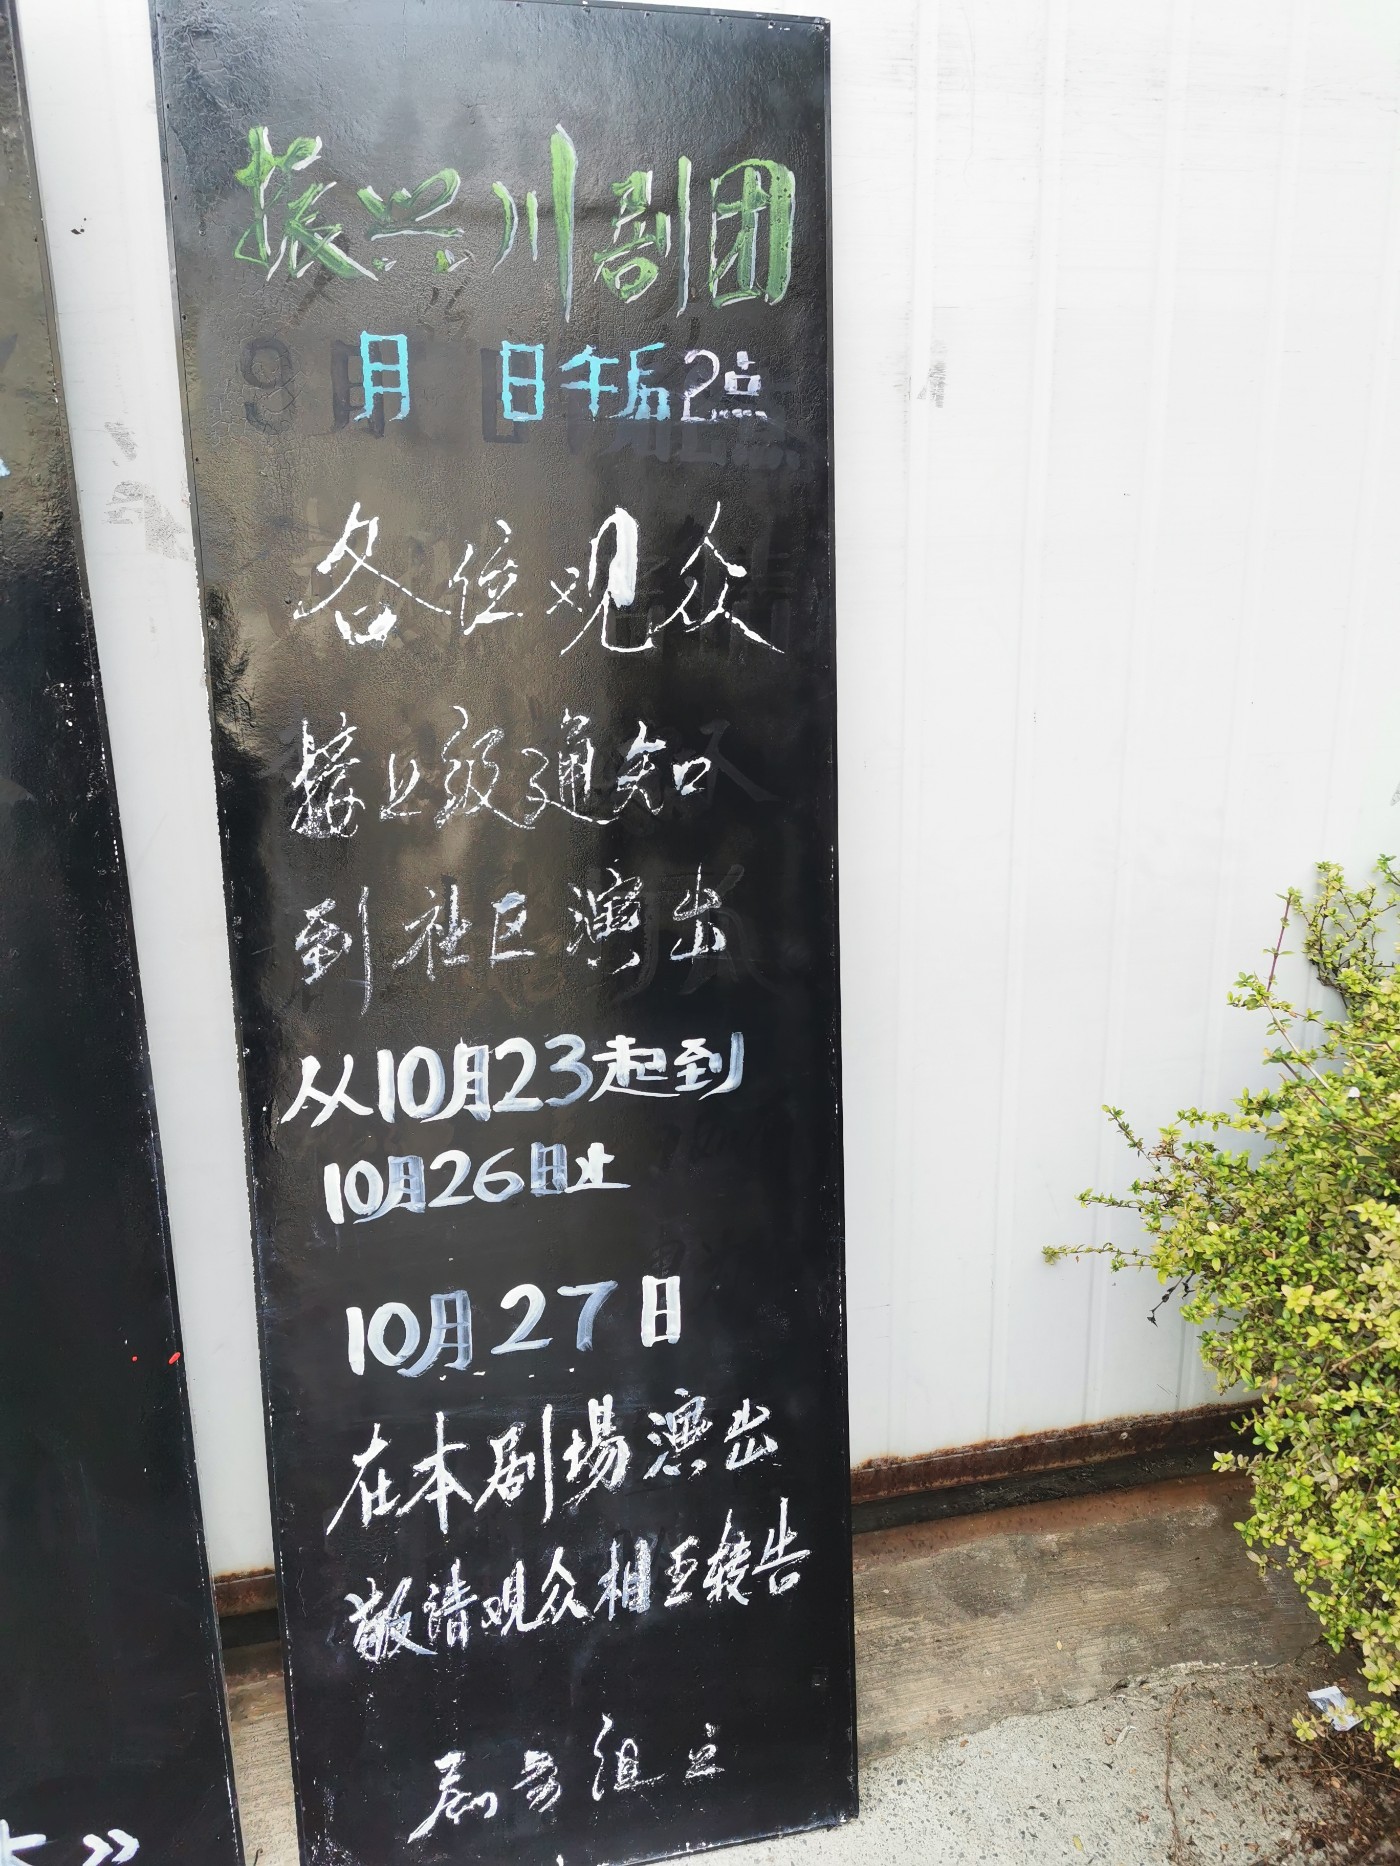 振兴川剧团
月 日午后2点
各位观众
接上级通知
到社区演出
从10月23起到
10月26日止
10月27日
在本剧場演出
敬请观众相互转告
剧务组
》